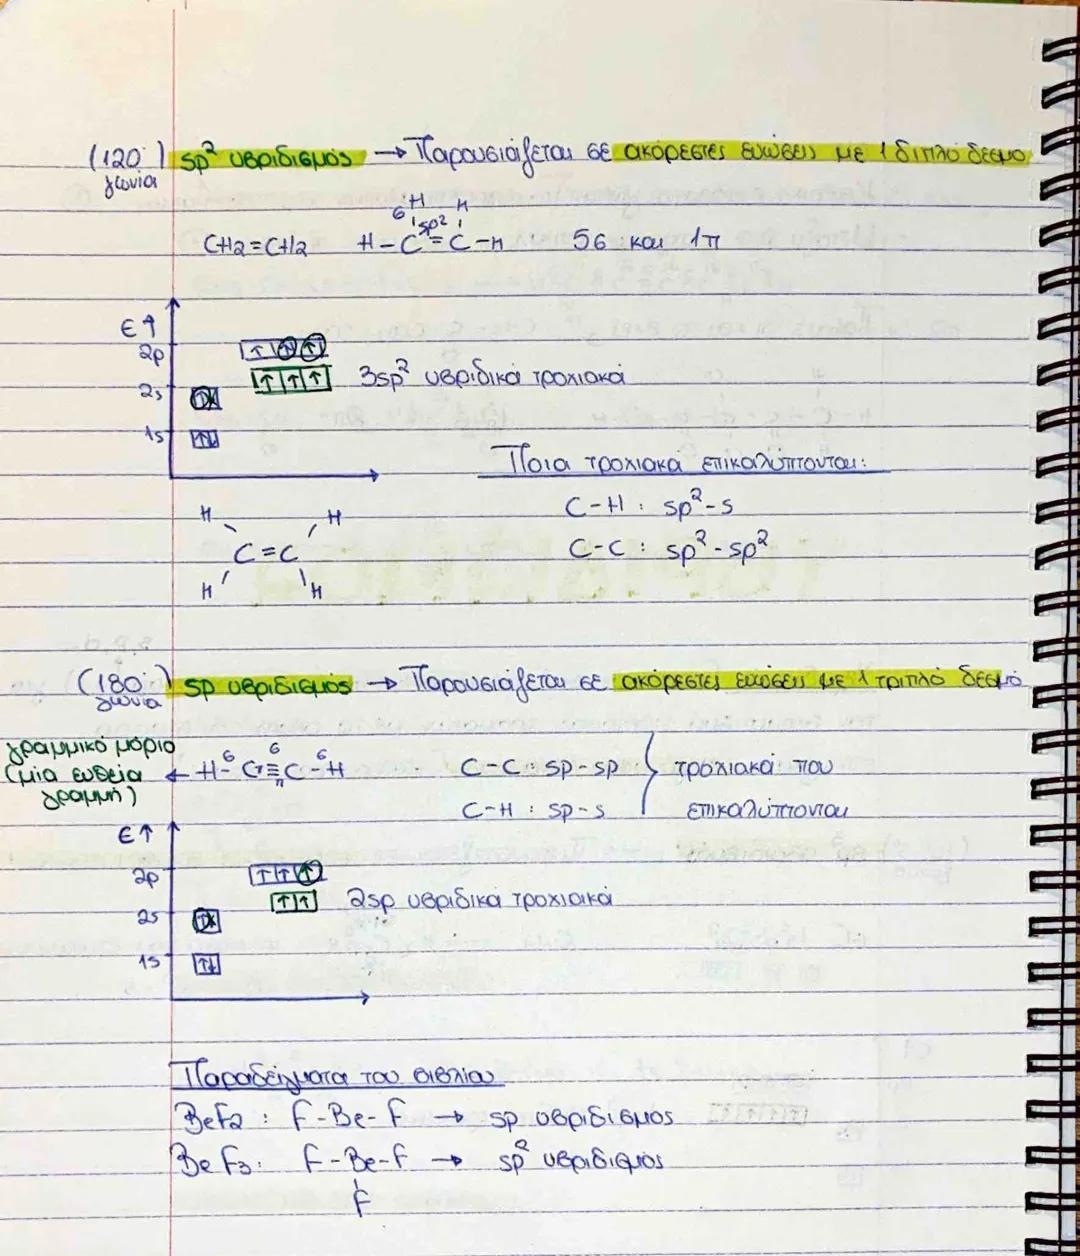 (120° γωνία) sp² υβριδισμός → Παρουσιάζεται σε ακόρεστες ενώσεις με 1 διπλό δεσμό
σ H H
sp²
CH2=CH2 H-C=C-H 5σ και 1π
E↑
2p ↑ ↑ ↑
↑ ↑ ↑ 3sp² υβριδικά τροχιακά
2s
1s ↑↓
Ποια τροχιακά επικαλύπτονται:
H H C-H: sp²-s
C=C C-C: sp²-sp²
H H
(180° γωνία) sp υβριδισμός → Παρουσιάζεται σε ακόρεστες ενώσεις με 1 τριπλό δεσμό
γραμμικό μόριο
(μία ευθεία γραμμή) ← H-C≡C-H
σ σ σ
π
C-C: sp-sp } τροχιακά που
C-H: sp-s επικαλύπτονται
E↑
2p ↑ ↑ ↑
↑ ↑ 2sp υβριδικά τροχιακά
2s
1s ↑↓
Παραδείγματα του βιβλίου
BeF2: F-Be-F → sp υβριδισμος
BeF3: F-Be-F → sp² υβριδισμος
F